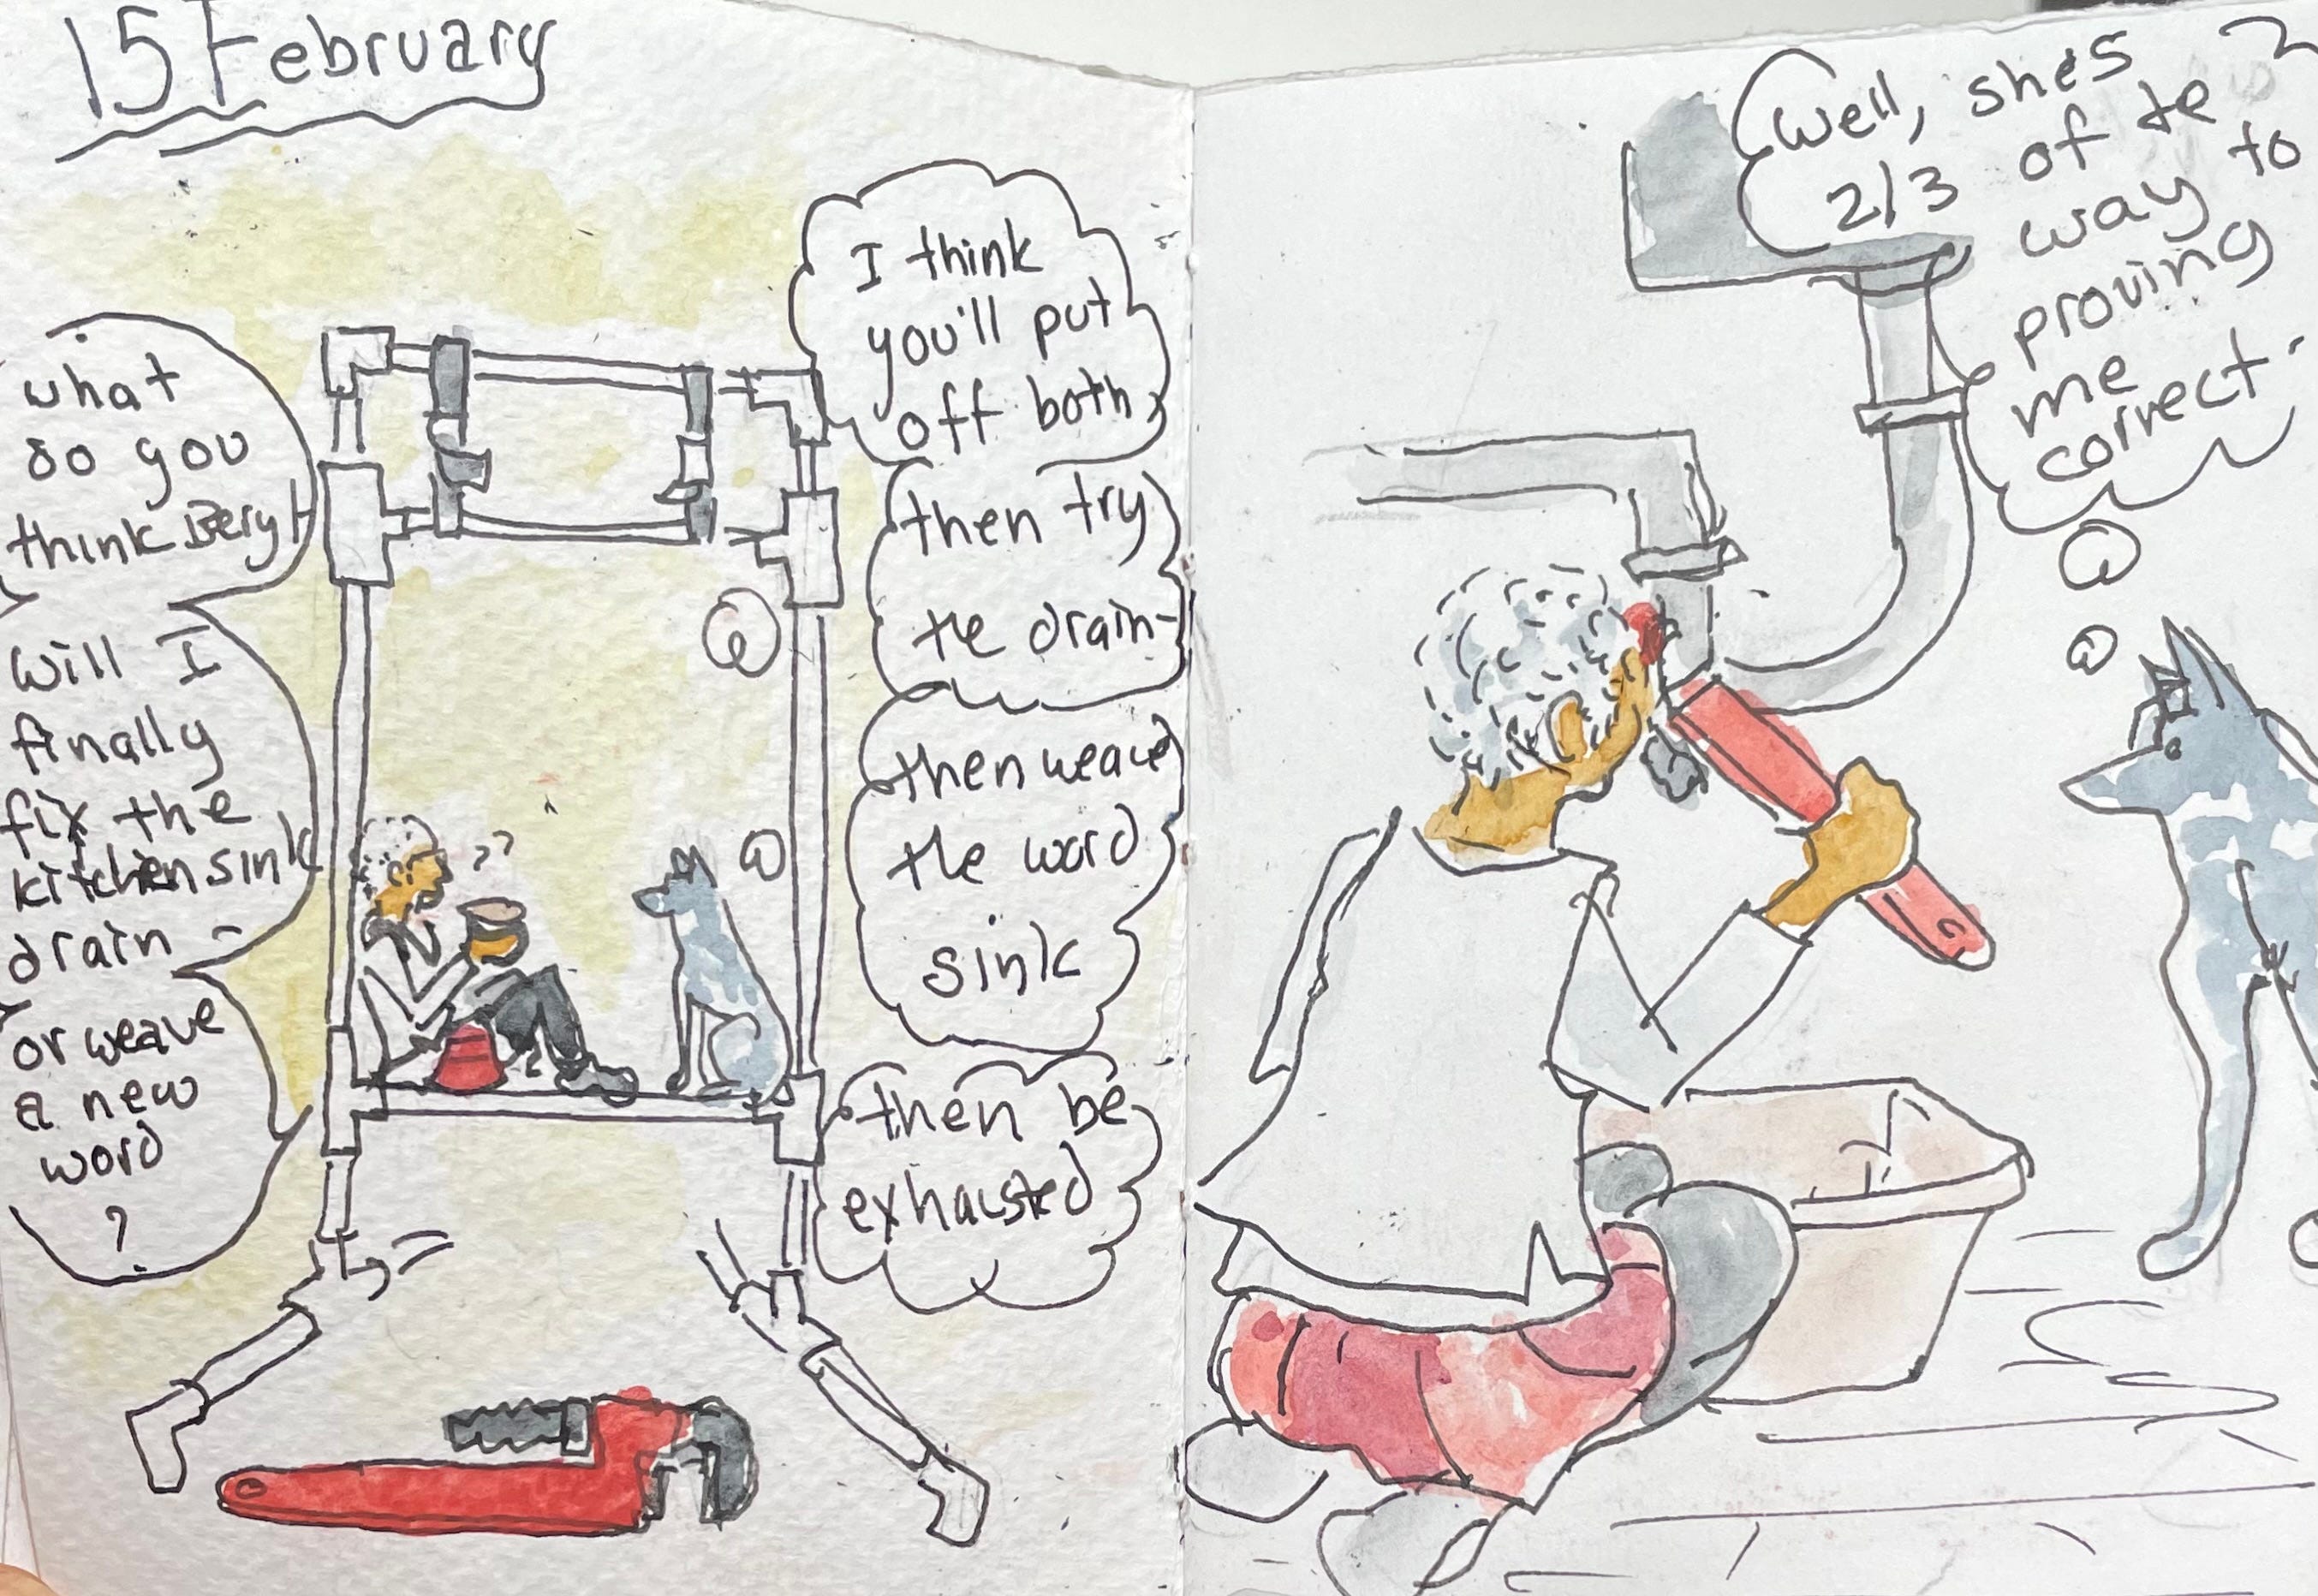 15 February
what
do you
think Beryl
Will I
finally
fix the
kitchen sink
drain -
or weave
a new
word
?
I think
you'll put
off both
then try
the drain -
then weave
the word
sink
then be
exhausted
Well, shes
2/3 of te
way to
proving
me
correct.